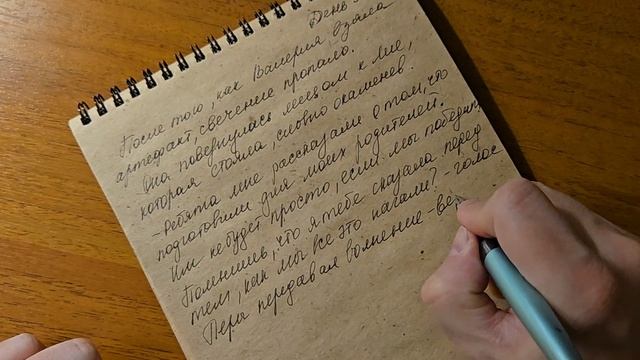 День
После того, как Валерия, взяла
артефакт, свечение пропало.
Она повернулась лицом к Лие,
которая стояла, словно окаменев.
- Ребята мне рассказали о том, что
подготовили для моих родителей.
Им не будет просто, если мы победим.
Помнишь, что я тебе сказала перед
тем, как мы все это начали? - голос
Леры передавал волнение - ве